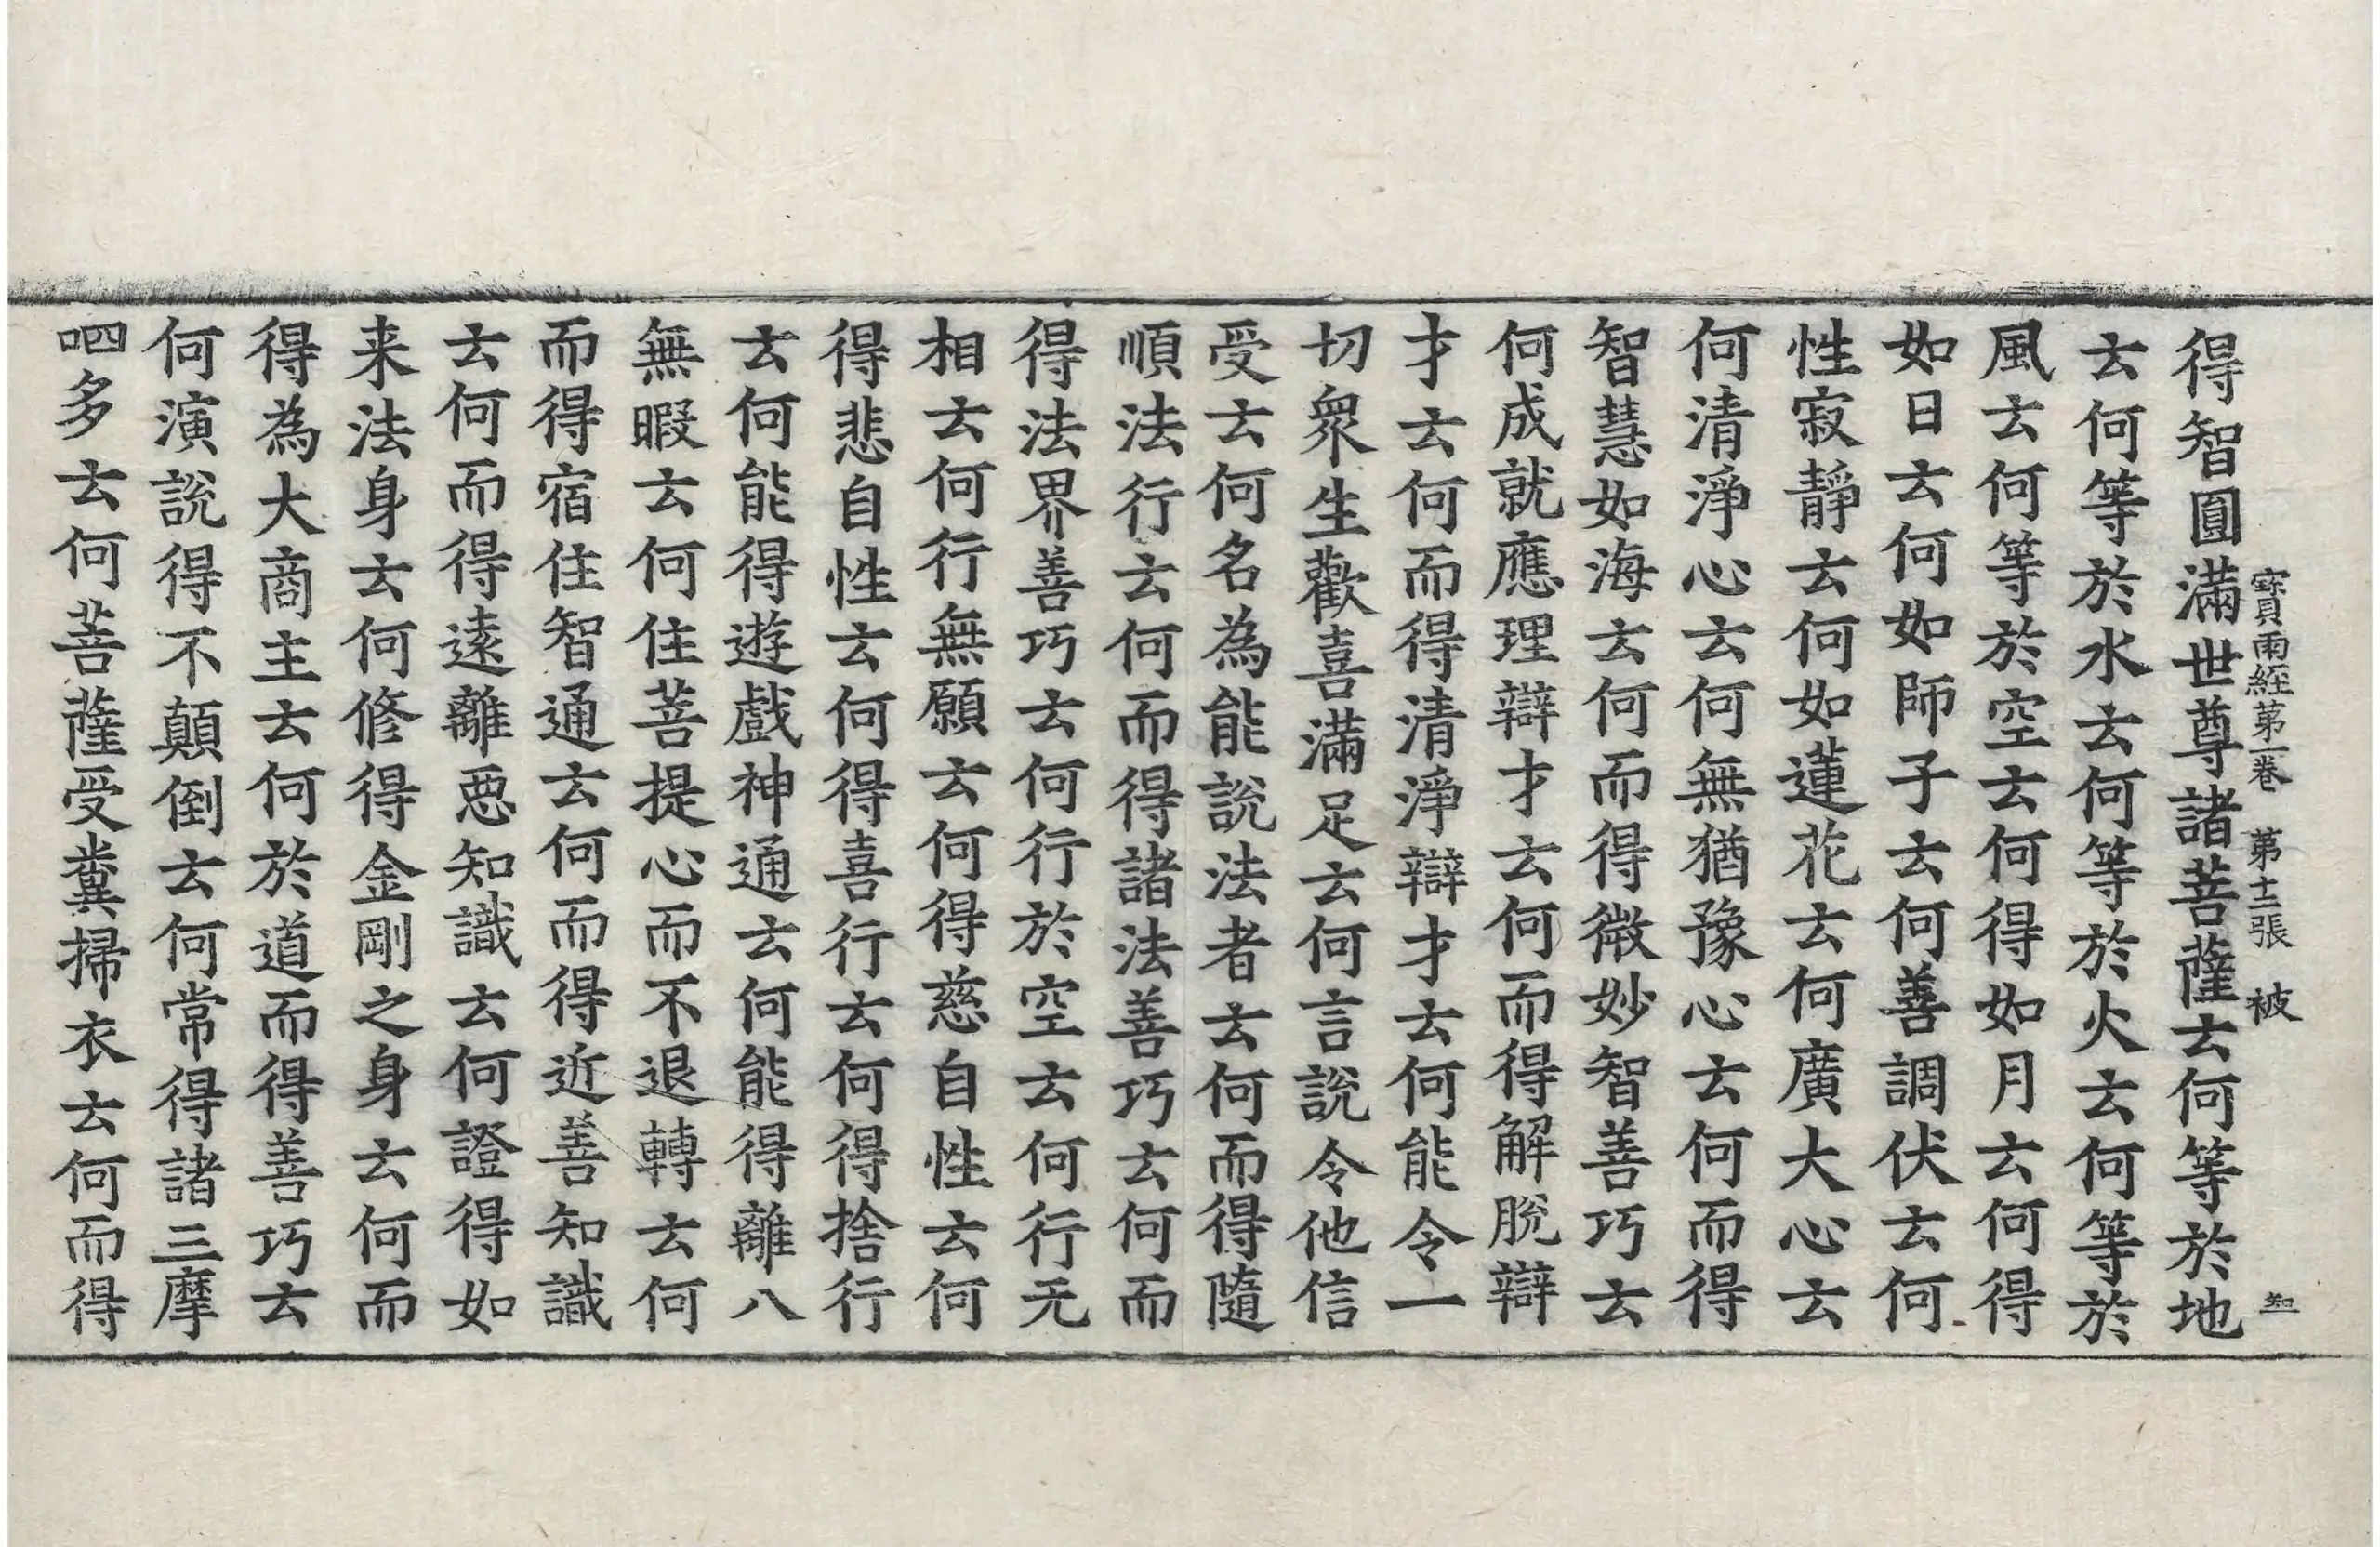 寳雨經第一卷　第十二張　被
得智圓滿世尊諸菩薩云何等於地
云何等於水云何等於火云何等於
風云何等於空云何得如月云何得
如日云何如師子云何善調伏云何
性寂靜云何如蓮花云何廣大心云
何清淨心云何無猶豫心云何而得
智慧如海云何而得微妙智善巧云
何成就應理辯才云何而得解脫辯
才云何而得清淨辯才云何能令一
切衆生歡喜滿足云何言說令他信
受云何名為能說法者云何而得隨
順法行云何而得諸法善巧云何而
得法界善巧云何行於空云何行无
相云何行無願云何得慈自性云何
得悲自性云何得喜行云何得捨行
云何能得遊戲神通云何能得離八
無暇云何住菩提心而不退轉云何
而得宿住智通云何而得近善知識
云何而得遠離惡知識云何證得如
来法身云何修得金剛之身云何而
得為大商主云何於道而得善巧云
何演說得不顛倒云何常得諸三摩
呬多云何菩薩受糞掃衣云何而得